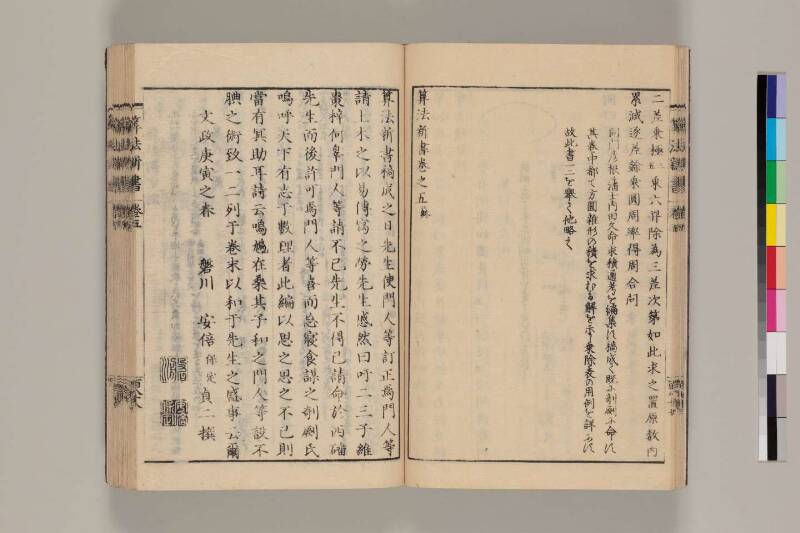 二差乗極三乗六昇除為三差次第如此求之置原数内
累減逐差餘乗圓周率得周合問
其巻中都て方圓雑形の積を求むる解を示し乗除表の用例を詳
故此書二三を擧て他略す
算法新書巻之五終
算法新書稿成之日先生使門人等訂正焉門人等
請上木之以易傳寫之勞先生感然曰吁二三子雖
棗梓何辠門人等請不已先生不得已請命於西磻
先生而後許可焉門人等喜而忘寝食謀之剞劂氏
嗚呼天下有志于數理者此編以思之思之不已則
當有其助耳詩云鳴鳩在桑其子和之門人等設不
腆之術致一二列于巻末以和于先生之盛事云爾
文政庚寅之春
磐川 安倍保定貞二撰
算法新書 巻五